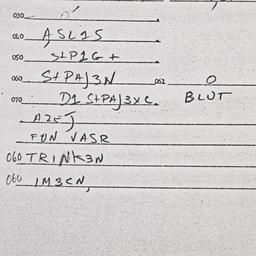 030
040 ASL1S
050 S+P1G+
060 S+PAJ3N 061 O
070 D1 S+PAJ3XC. BLUT
AZEJ
FON VASR
060 TRINK3N
060 IM3CN,